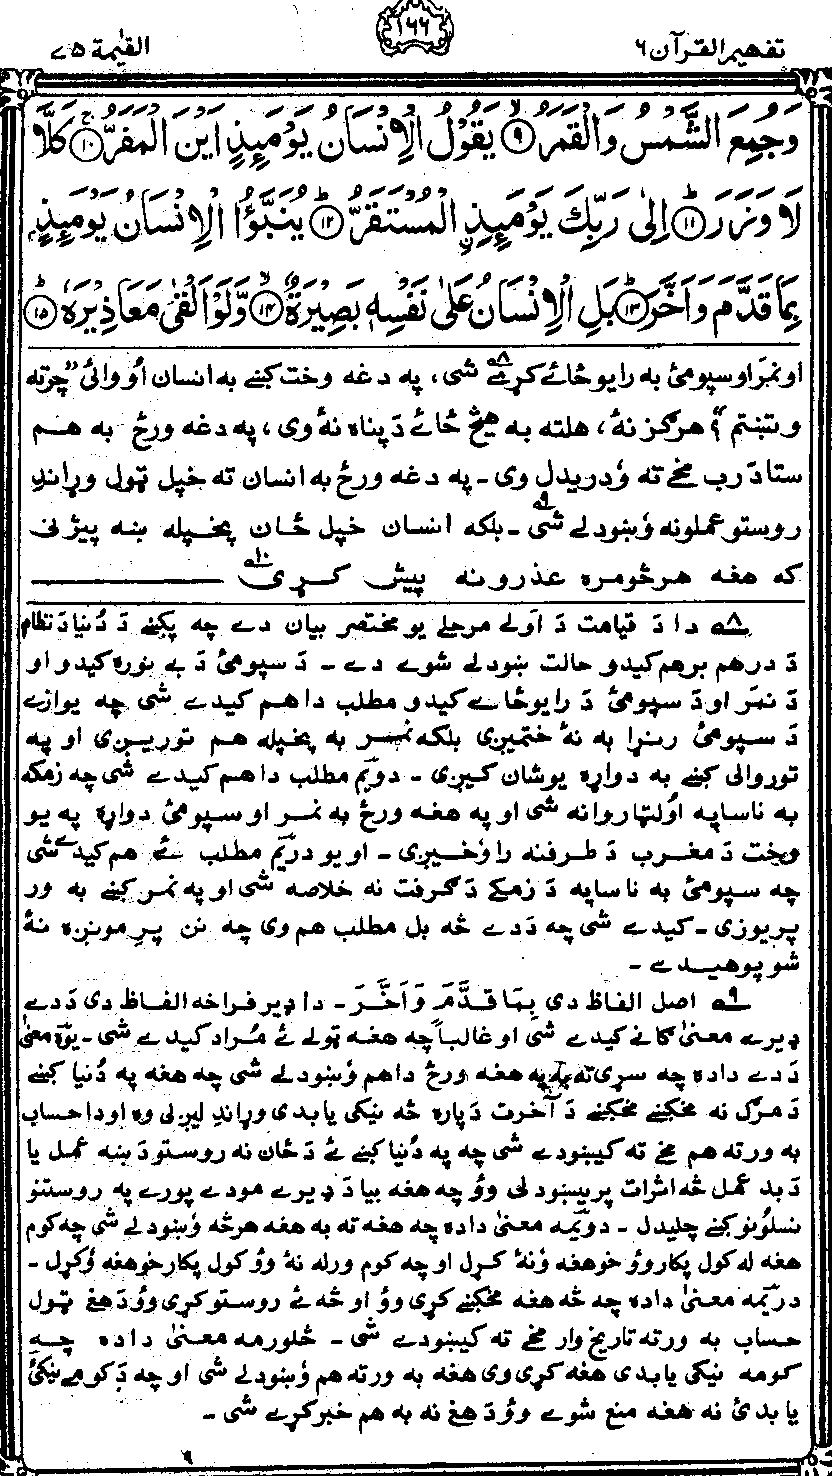 تفهیم القرآن ۶
۱۶۶
القیٰمة ۷۵
وَجُمِعَ الشَّمْسُ وَالْقَمَرُ ۙ﴿۹﴾ يَقُوْلُ الْاِنْسَانُ يَوْمَئِذٍ اَيْنَ الْمَفَرُّ ۚ﴿۱۰﴾ كَلَّا
لَا وَزَرَ ؕ﴿۱۱﴾ اِلٰى رَبِّكَ يَوْمَئِذِ ِۨالْمُسْتَقَرُّ ؕ﴿۱۲﴾ يُنَبَّؤُا الْاِنْسَانُ يَوْمَئِذٍۭ
بِمَا قَدَّمَ وَاَخَّرَ ؕ﴿۱۳﴾ بَلِ الْاِنْسَانُ عَلٰى نَفْسِهٖ بَصِيْرَةٌ ۙ﴿۱۴﴾ وَّلَوْ اَلْقٰى مَعَاذِيْرَهٗ ؕ﴿۱۵﴾
او نمر او سپوږمۍ به را یو ځاے کړے شی ۸، په دغه وخت کښے به انسان اُو وائی "چرته
وتښتم؟" هرګز نۀ، هلته به هیڅ ځاے دَ پناه نۀ وی، په دغه ورځ به هم
ستا دَ رب مخے ته وُدریدل وی۔ په دغه ورځ به انسان ته خپل ټول وړاندِ
روستو عملونه وُښودلے شی ۹۔ بلکه انسان خپل ځان پخپله ښه پیژنی
که هغه هر څومره عذرونه پیش کړی ۱۰
۸ دا دَ قیامت دَ اَولے مرحلے یو مختصر بیان دے چه پکښے دَ دُنیا دَ نظام
دَ درهم برهم کیدو حالت ښودلے شوے دے۔ دَ سپوږمۍ دَ بے نوره کیدو او
دَ نمر او دَ سپوږمۍ دَ را یو ځاے کیدو مطلب دا هم کیدے شی چه یوازے
دَ سپوږمۍ رنړا به نۀ ختمیږی بلکه نمر به پخپله هم توریږی او په
توروالی کښے به دواړه یوشان کیږی۔ دویَم مطلب دا هم کیدے شی چه زمکه
به ناساپه اُولټه روانه شی او په هغه ورځ به نمر او سپوږمۍ دواړه په یو
وخت دَ مغرب دَ طرفنه راوُخیژی۔ او یو دریَم مطلب ئے هم کیدے شی
چه سپوږمۍ به ناساپه دَ زمکے دَ ګرفت نه خلاصه شی او په نمر کښے به ور
پریوزی۔ کیدے شی چه دَدے څه بل مطلب هم وی چه نن پرِ مونږه نۀ
شو پوهیدے۔
۹ اصل الفاظ دی بِمَا قَدَّمَ وَاَخَّرَ۔ دا ډیر فراخه الفاظ دی دَدے
ډیرے معنیٰ ګانے کیدے شی او غالباً چه هغه ټولے ئے مُراد کیدے شی۔ یوَه معنیٰ
دَدے داده چه سړی ته به په هغه ورځ دا هم وُښودلے شی چه هغه په دُنیا کښے
دَ مرګ نه مخکښے مخکښے دَ آخرت دَپاره څه نیکی یا بدی وړاندِ لیږلی وه او دا حساب
به ورته هم مخے ته کیښودے شی چه په دُنیا کښے ئے دَ ځان نه روستو دَ ښه عمل یا
دَ بد عمل څه اثرات پریښودلی وؤ چه هغه بیا دَ ډیرے مودے پورے په روستنو
نسلُونو کښے چلیدل۔ دویَمه معنیٰ داده چه هغه ته به هغه هر څه وُښودلے شی چه کوم
هغه له کول پکار وؤ خو هغه وُنۀ کړل او چه کوم ورله نۀ وؤ کول پکار خو هغه وُکړل۔
دریَمه معنیٰ داده چه څه هغه مخکښے کړی وؤ او څه ئے روستو کړی وؤ دَهغے ټول
حساب به ورته تاریخ وار مخے ته کیښودے شی۔ څلورمه معنیٰ داده چه
کومه نیکی یا بدی هغه کړی وی هغه به ورته هم وُښودلے شی او چه دَ کومے نیکۍ
یا بدۍ نه هغه منع شوے وؤ دَهغے نه به هم خبر کړے شی۔